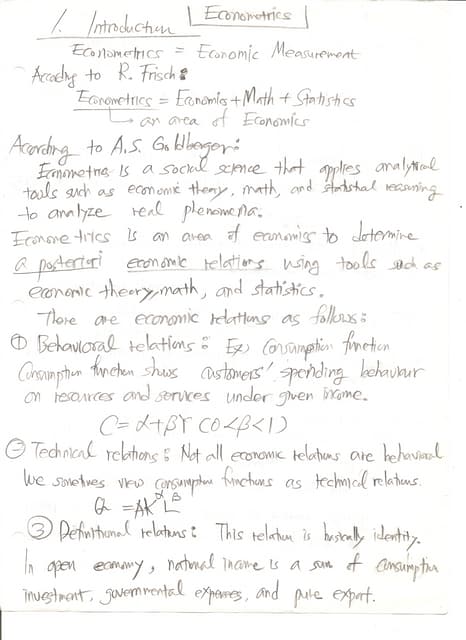 Econometrics
1. Introduction
Econometrics = Economic Measurement
According to R. Frisch:
Econometrics = Economics + Math + Statistics
an area of Economics
According to A.S. Goldberger:
Econometrics is a social science that applies analytical
tools such as economic theory, math, and statistical reasoning
to analyze real phenomena.
Econometrics is an area of economics to determine
a posteriori economic relations using tools such as
economic theory, math, and statistics.
There are economic relations as follows:
① Behavioral relations: Ex) Consumption function
Consumption function shows customers' spending behaviour
on resources and services under given income.
C = α + βY (0 < β < 1)
② Technical relations: Not all economic relations are behavioral
We sometimes view consumption functions as technical relations.
Q = AK^α L^β
③ Definitional relations: This relation is basically identity.
In open economy, national income is a sum of consumption
investment, governmental expenses, and pure export.